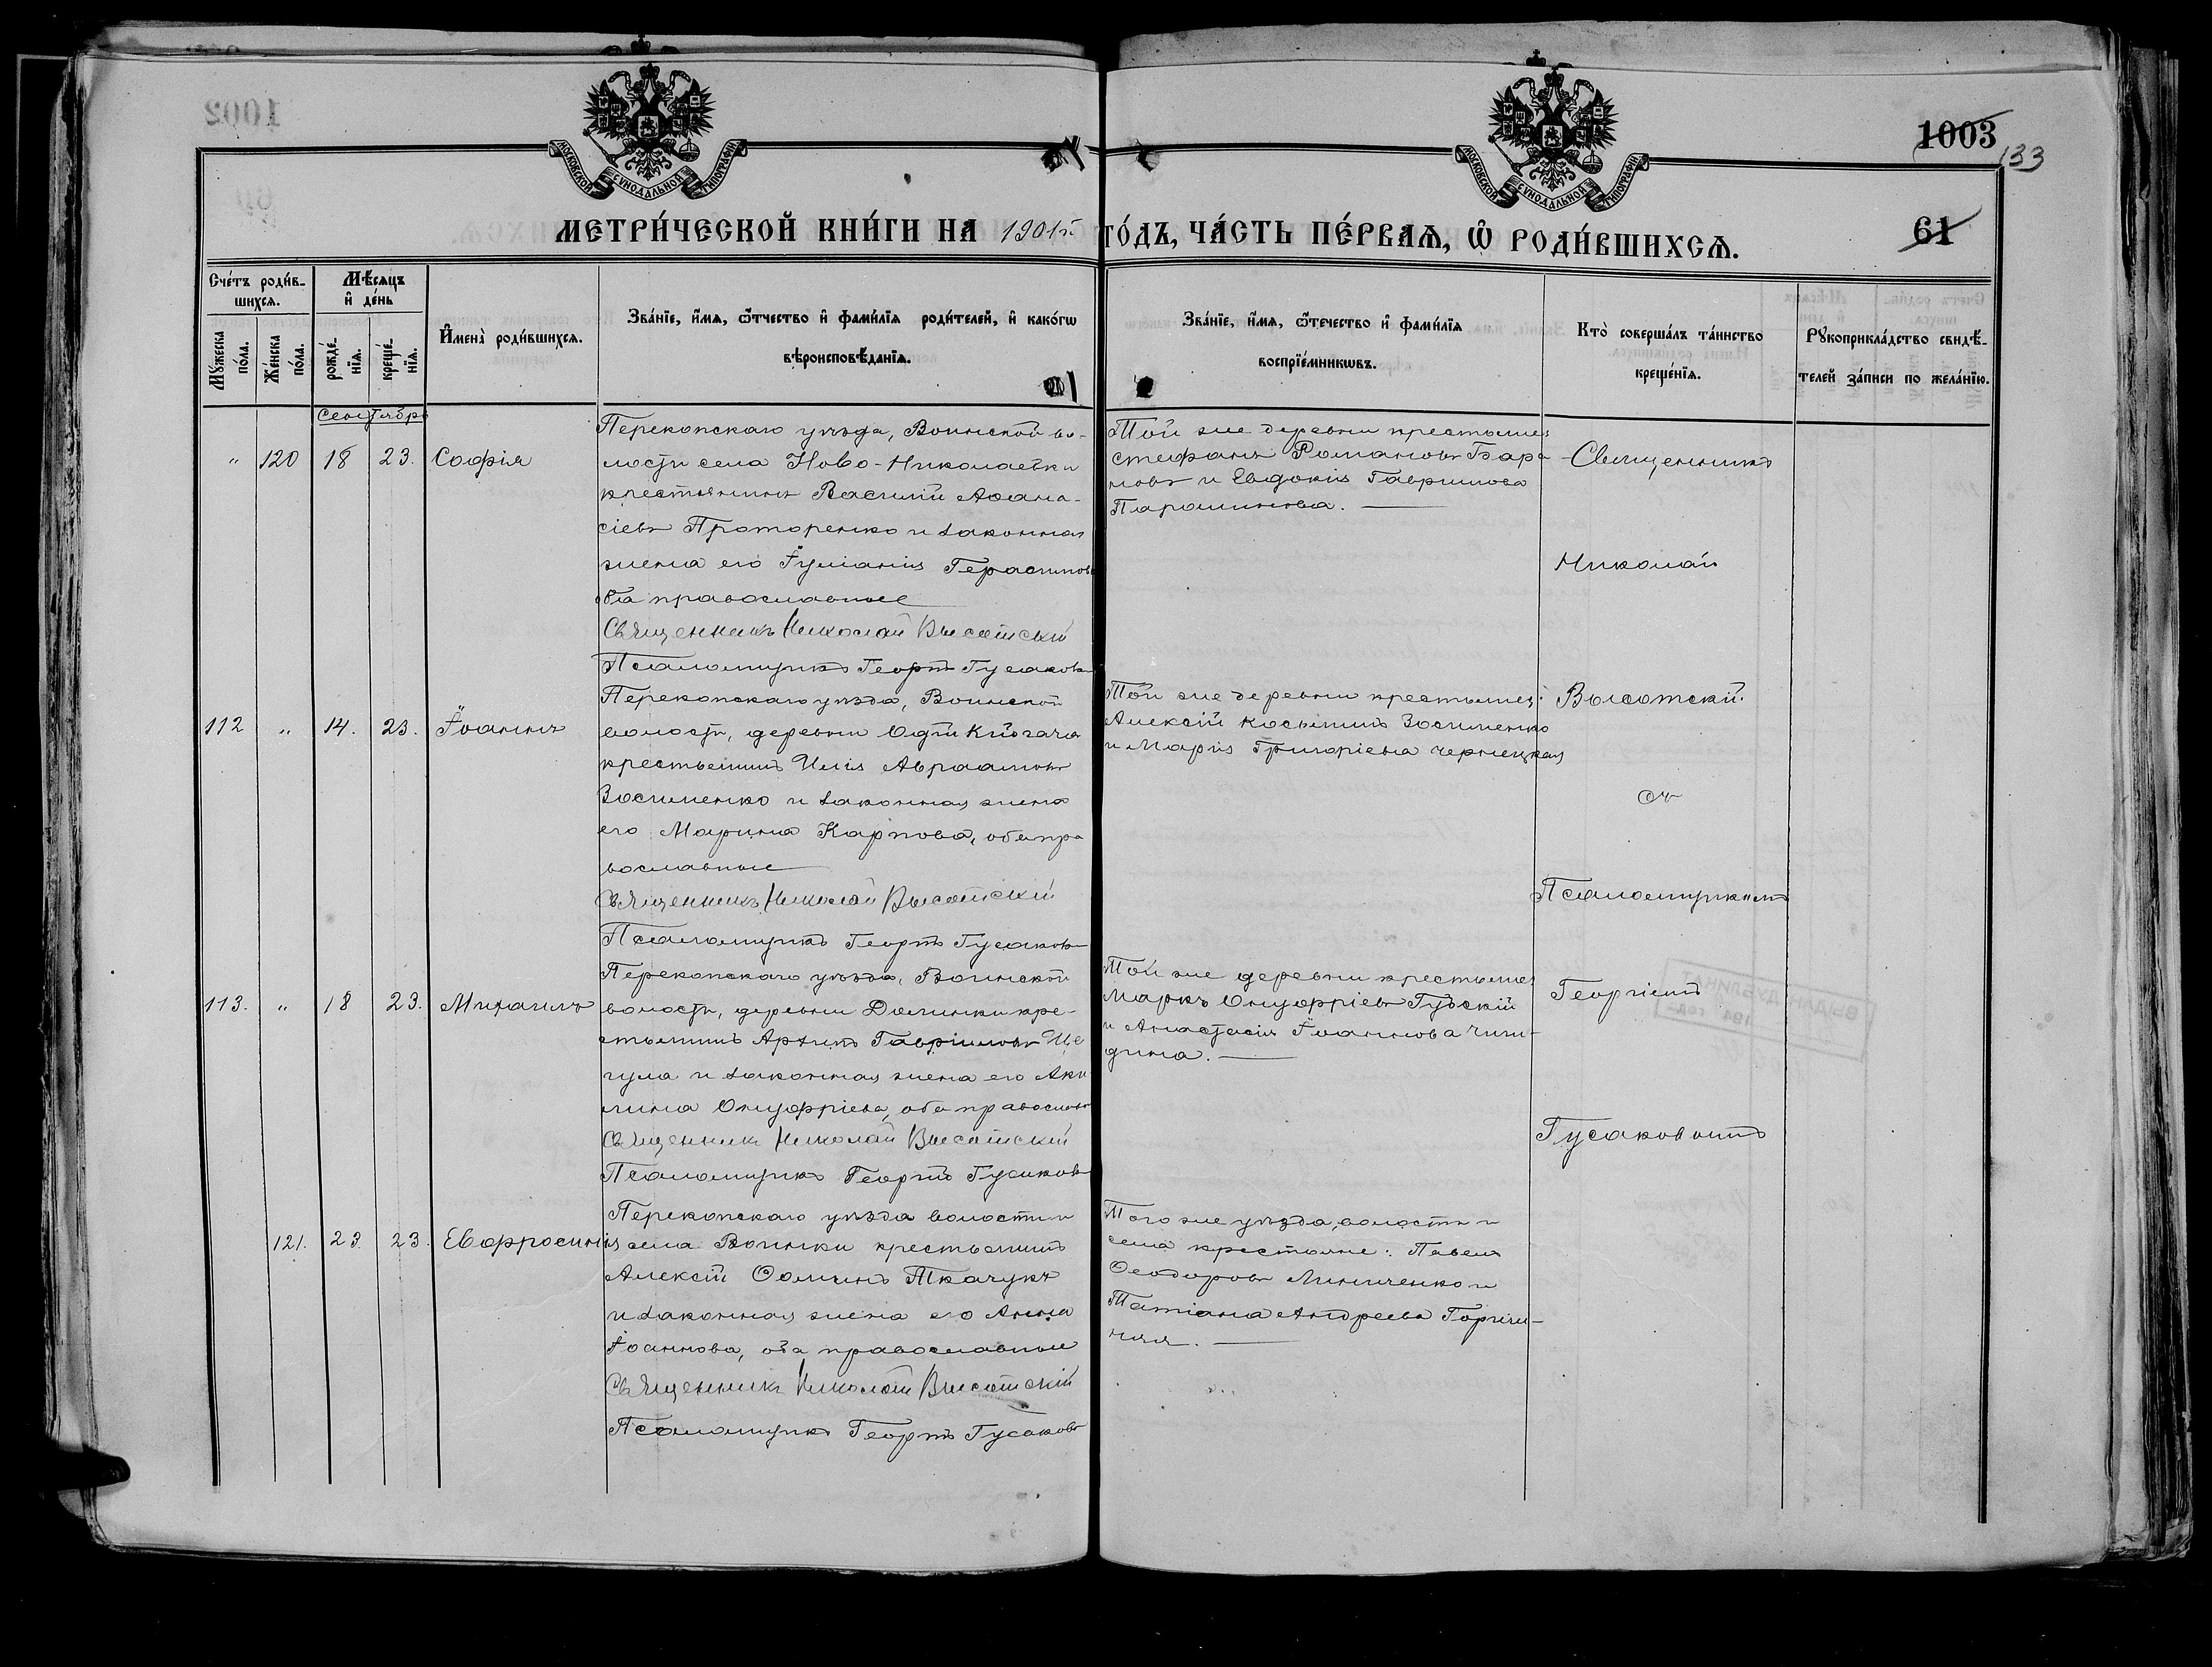 1003
133
МОСКОВСКОЙ СѴНОДАЛЬНОЙ ТИПОГРАФІИ
МОСКОВСКОЙ СѴНОДАЛЬНОЙ ТИПОГРАФІИ
МЕТРИ́ЧЕСКОЙ КНИ́ГИ НА 1901й ГО́ДЪ, ЧА́СТЬ ПЕ́РВАѦ, Ѡ҆ РОДИ́ВШИХСѦ.
61
Сче́тъ роди́в-
шихсѧ.
Мꙋ́жеска
по́ла.
Же́нска
по́ла.
Мѣ́сѧцъ
и҆ де́нь
рожде́-
нїѧ.
креще́-
нїѧ.
И҆мена̀ роди́вшихсѧ.
Зва́нїе, и҆́мѧ, ѻ҆́тчество и҆ фами́лїѧ роди́телей, и҆ како́гѡ
вѣроисповѣ́данїѧ.
Зва́нїе, и҆́мѧ, ѻ҆́течество и҆ фами́лїѧ
воспрїе́мникѡвъ.
Кто̀ соверша́лъ та́инство
креще́нїѧ.
Рꙋкоприкла́дство свидѣ́-
телей за́писи по жела́нїю.
Сентябрь
" 120 18 23. Софія
Перекопскаго уѣзда, Воинской во-
лости села Ново-Николаевки
крестьянинъ Василій Аѳана-
сіевъ Проторенко и законная
жена его Іуліанія Герасимова
оба православные
Священникъ Николай Высотскій
Псаломщикъ Георгій Гусаковъ
Той же деревни крестьяне:
Стефанъ Романовъ Бара
новъ и Евдокія Гаврилова
Паромикова.
Священникъ
Николай
Высотскій
съ
Псаломщикомъ
Георгіемъ
Гусаковымъ
112 " 14. 23. Іоаннъ
Перекопскаго уѣзда, Воинской
волости, деревни
крестьянинъ Илія Авраамовъ
Зосименко и законная жена
его Марина Карпова, оба пра
вославные
Священникъ Николай Высотскій
Псаломщикъ Георгій Гусаковъ
Той же деревни крестьяне:
Алексій Косьминъ Зосименко
и Марія Григоріева Чернецкая
113. " 18 23. Михаилъ
Перекопскаго уѣзда, Воинской
волости, деревни Долинки кре-
стьянинъ Архипъ Гавріиловъ Ще
гула и законная жена его Аки
лина Онуфріева, оба православ
Священникъ Николай Высотскій
Псаломщикъ Георгій Гусаковъ
Той же деревни крестьяне
Маркъ Онуфріевъ Гудскій
и Анастасія Іоаннова Чиги-
дина.
121. 23 23. Евфросинія
Перекопскаго уѣзда волости и
села Воинки крестьянинъ
Алексій Ѳоминъ Ткачукъ
и законная жена его Анна
Іоаннова, оба православные
Священникъ Николай Высотскій
Псаломщикъ Георгій Гусаковъ
Того же уѣзда, волости и
села крестьяне: Павелъ
Ѳеодоровъ Линиченко и
Татіана Андреева